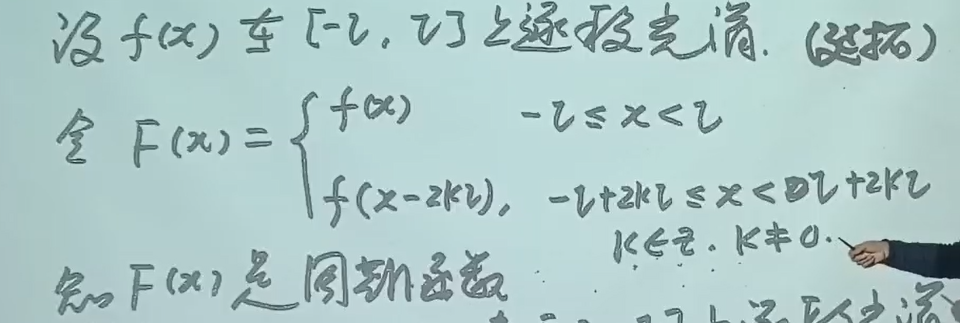 设 f(x) 在 [-l, l] 上逐段光滑. (延拓)
令 F(x) = { f(x)   -l ≤ x < l
f(x-2kl), -l+2kl ≤ x < l+2kl
k∈z. k≠0.
知 F(x) 是周期函数